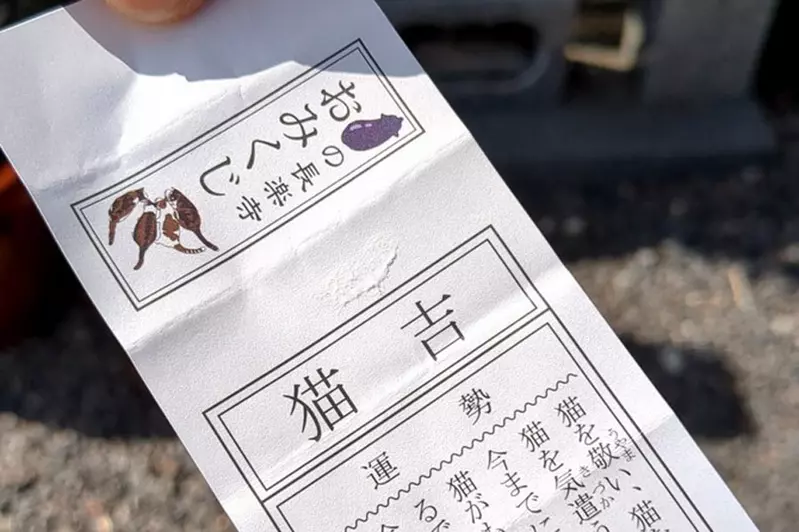 おみくじ
の長楽寺
猫吉
運勢
猫を敬い、猫
うやま
猫を気遣
きづか
今まで
猫が
る